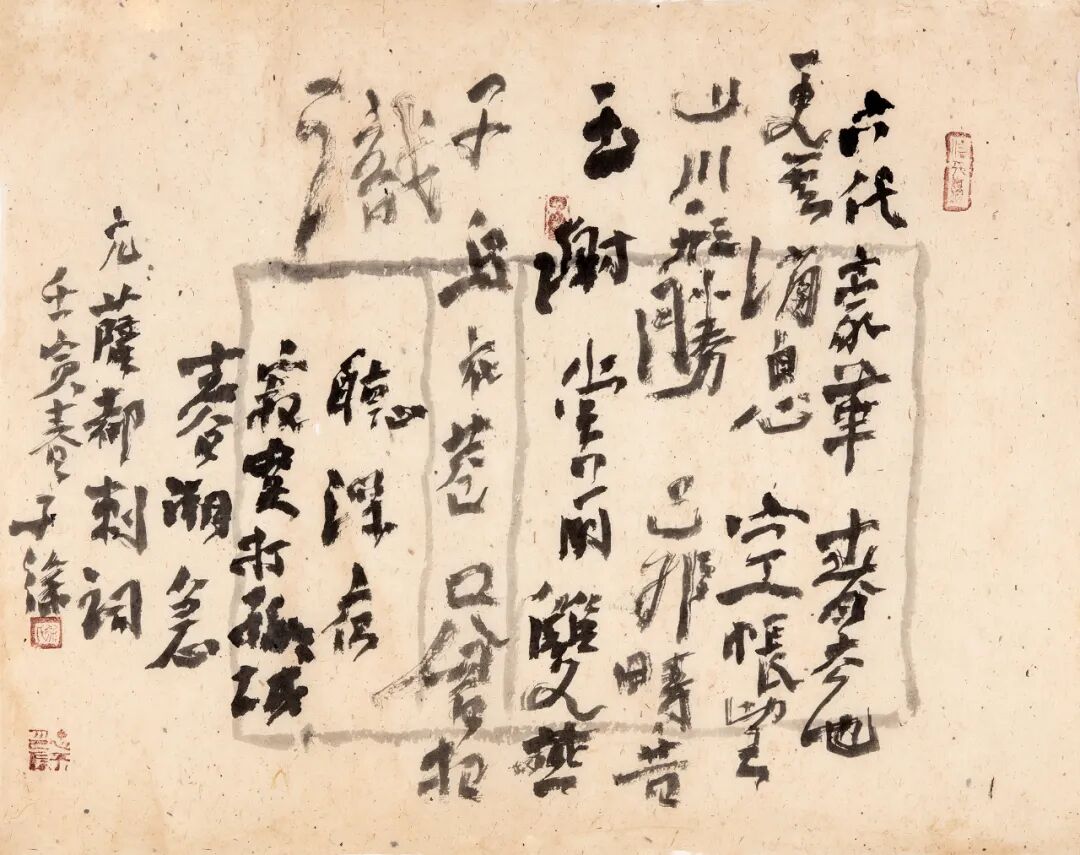 六代豪華春去也
更無消息空悵望
山川形勝已非疇昔
王謝堂前雙燕
子烏衣巷口曾相
識
聽深夜
寂寞打孤城
春潮急
元薩都剌詞
壬寅春子